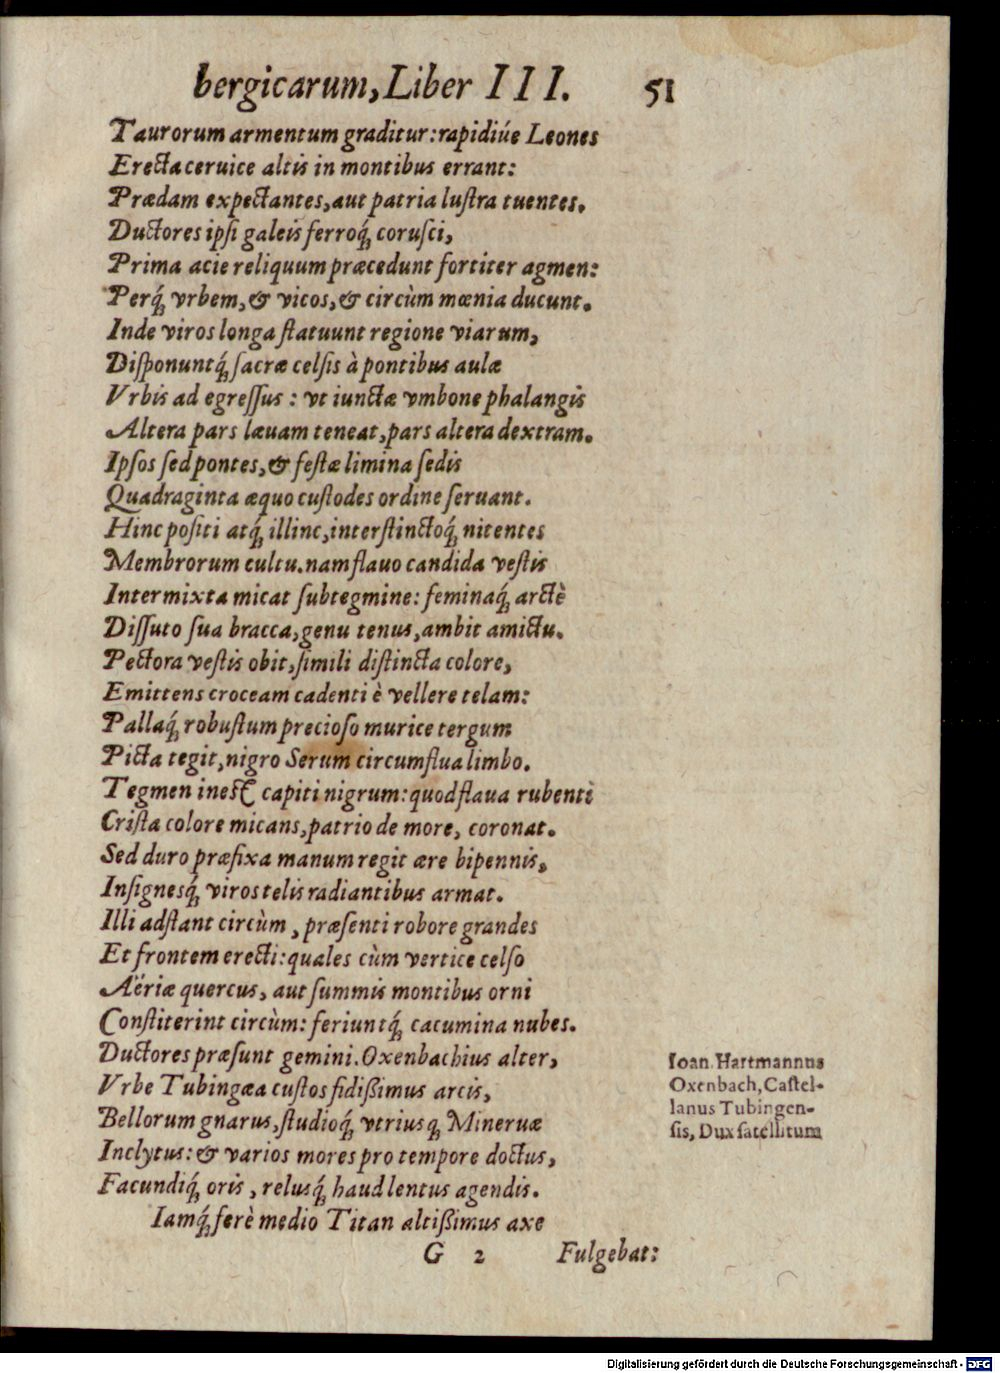 bergicarum, Liber III. 51
Taurorum armentum graditur: rapidiúe Leones
Erecta ceruice altis in montibus errant:
Prædam expectantes, aut patria lustra tuentes.
Ductores ipsi galeis ferroq́; corusci,
Prima acie reliquum præcedunt fortiter agmen:
Perq́; vrbem, & vicos, & circùm mœnia ducunt.
Inde viros longa statuunt regione viarum,
Disponuntq́; sacræ celsis à pontibus aulæ
Vrbis ad egressus: vt iunctæ vmbone phalangis
Altera pars læuam teneat, pars altera dextram.
Ipsos sed pontes, & festæ limina sedis
Quadraginta æquo custodes ordine seruant.
Hinc positi atq́; illinc, interstinctoq́; nitentes
Membrorum cultu. nam flauo candida vestis
Intermixta micat subtegmine: feminaq́; arctè
Dissuto sua bracca, genu tenus, ambit amictu.
Pectora vestis obit, simili distincta colore,
Emittens croceam cadenti è vellere telam:
Pallaq́; robustum precioso murice tergum
Picta tegit, nigro Serum circumflua limbo.
Tegmen inest capiti nigrum: quod flaua rubenti
Crista colore micans, patrio de more, coronat.
Sed duro præfixa manum regit ære bipennis,
Insignesq́; viros telis radiantibus armat.
Illi adstant circùm, præsenti robore grandes
Et frontem erecti: quales cùm vertice celso
Aëriæ quercus, aut summis montibus orni
Constiterint circùm: feriuntq́; cacumina nubes.
Ductores præsunt gemini. Oxenbachius alter,
Vrbe Tubingæa custos fidißimus arcis,
Bellorum gnarus, studioq́; vtriusq; Mineruæ
Inclytus: & varios mores pro tempore doctus,
Facundiq́; oris, relusq́; haud lentus agendis.
Ioan. Hartmannus
Oxenbach, Castel-
lanus Tubingen-
sis, Dux satellitum
Iamq́; ferè medio Titan altißimus axe
G 2 Fulgebat:
Digitalisierung gefördert durch die Deutsche Forschungsgemeinschaft - DFG